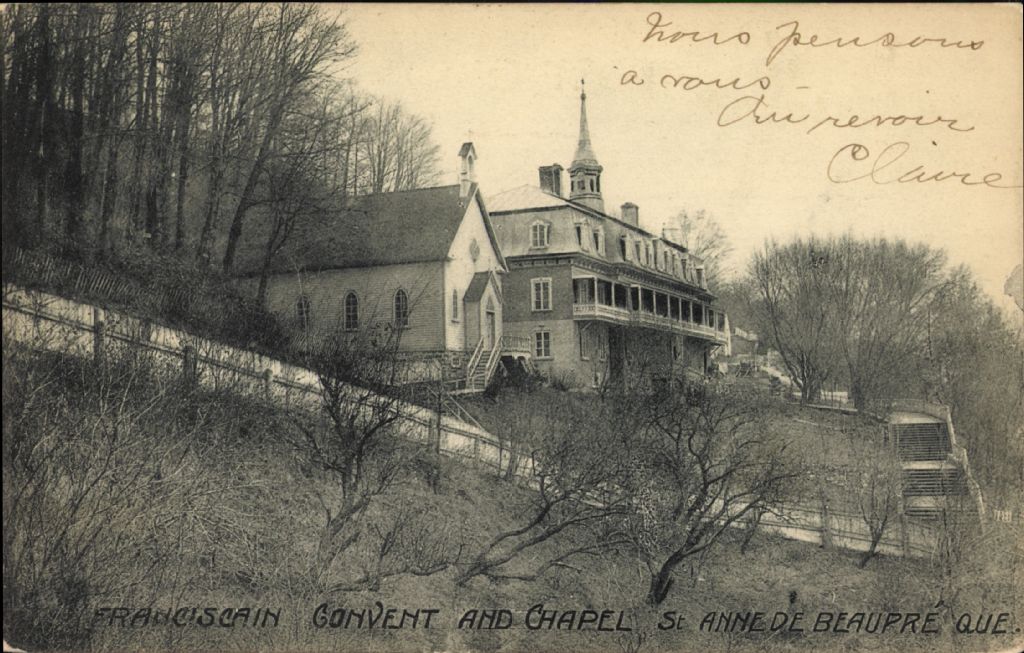 Nous pensons
a vous
Au revoir
Claire
FRANCISCAIN CONVENT AND CHAPEL St ANNE DE BEAUPRÉ QUE.